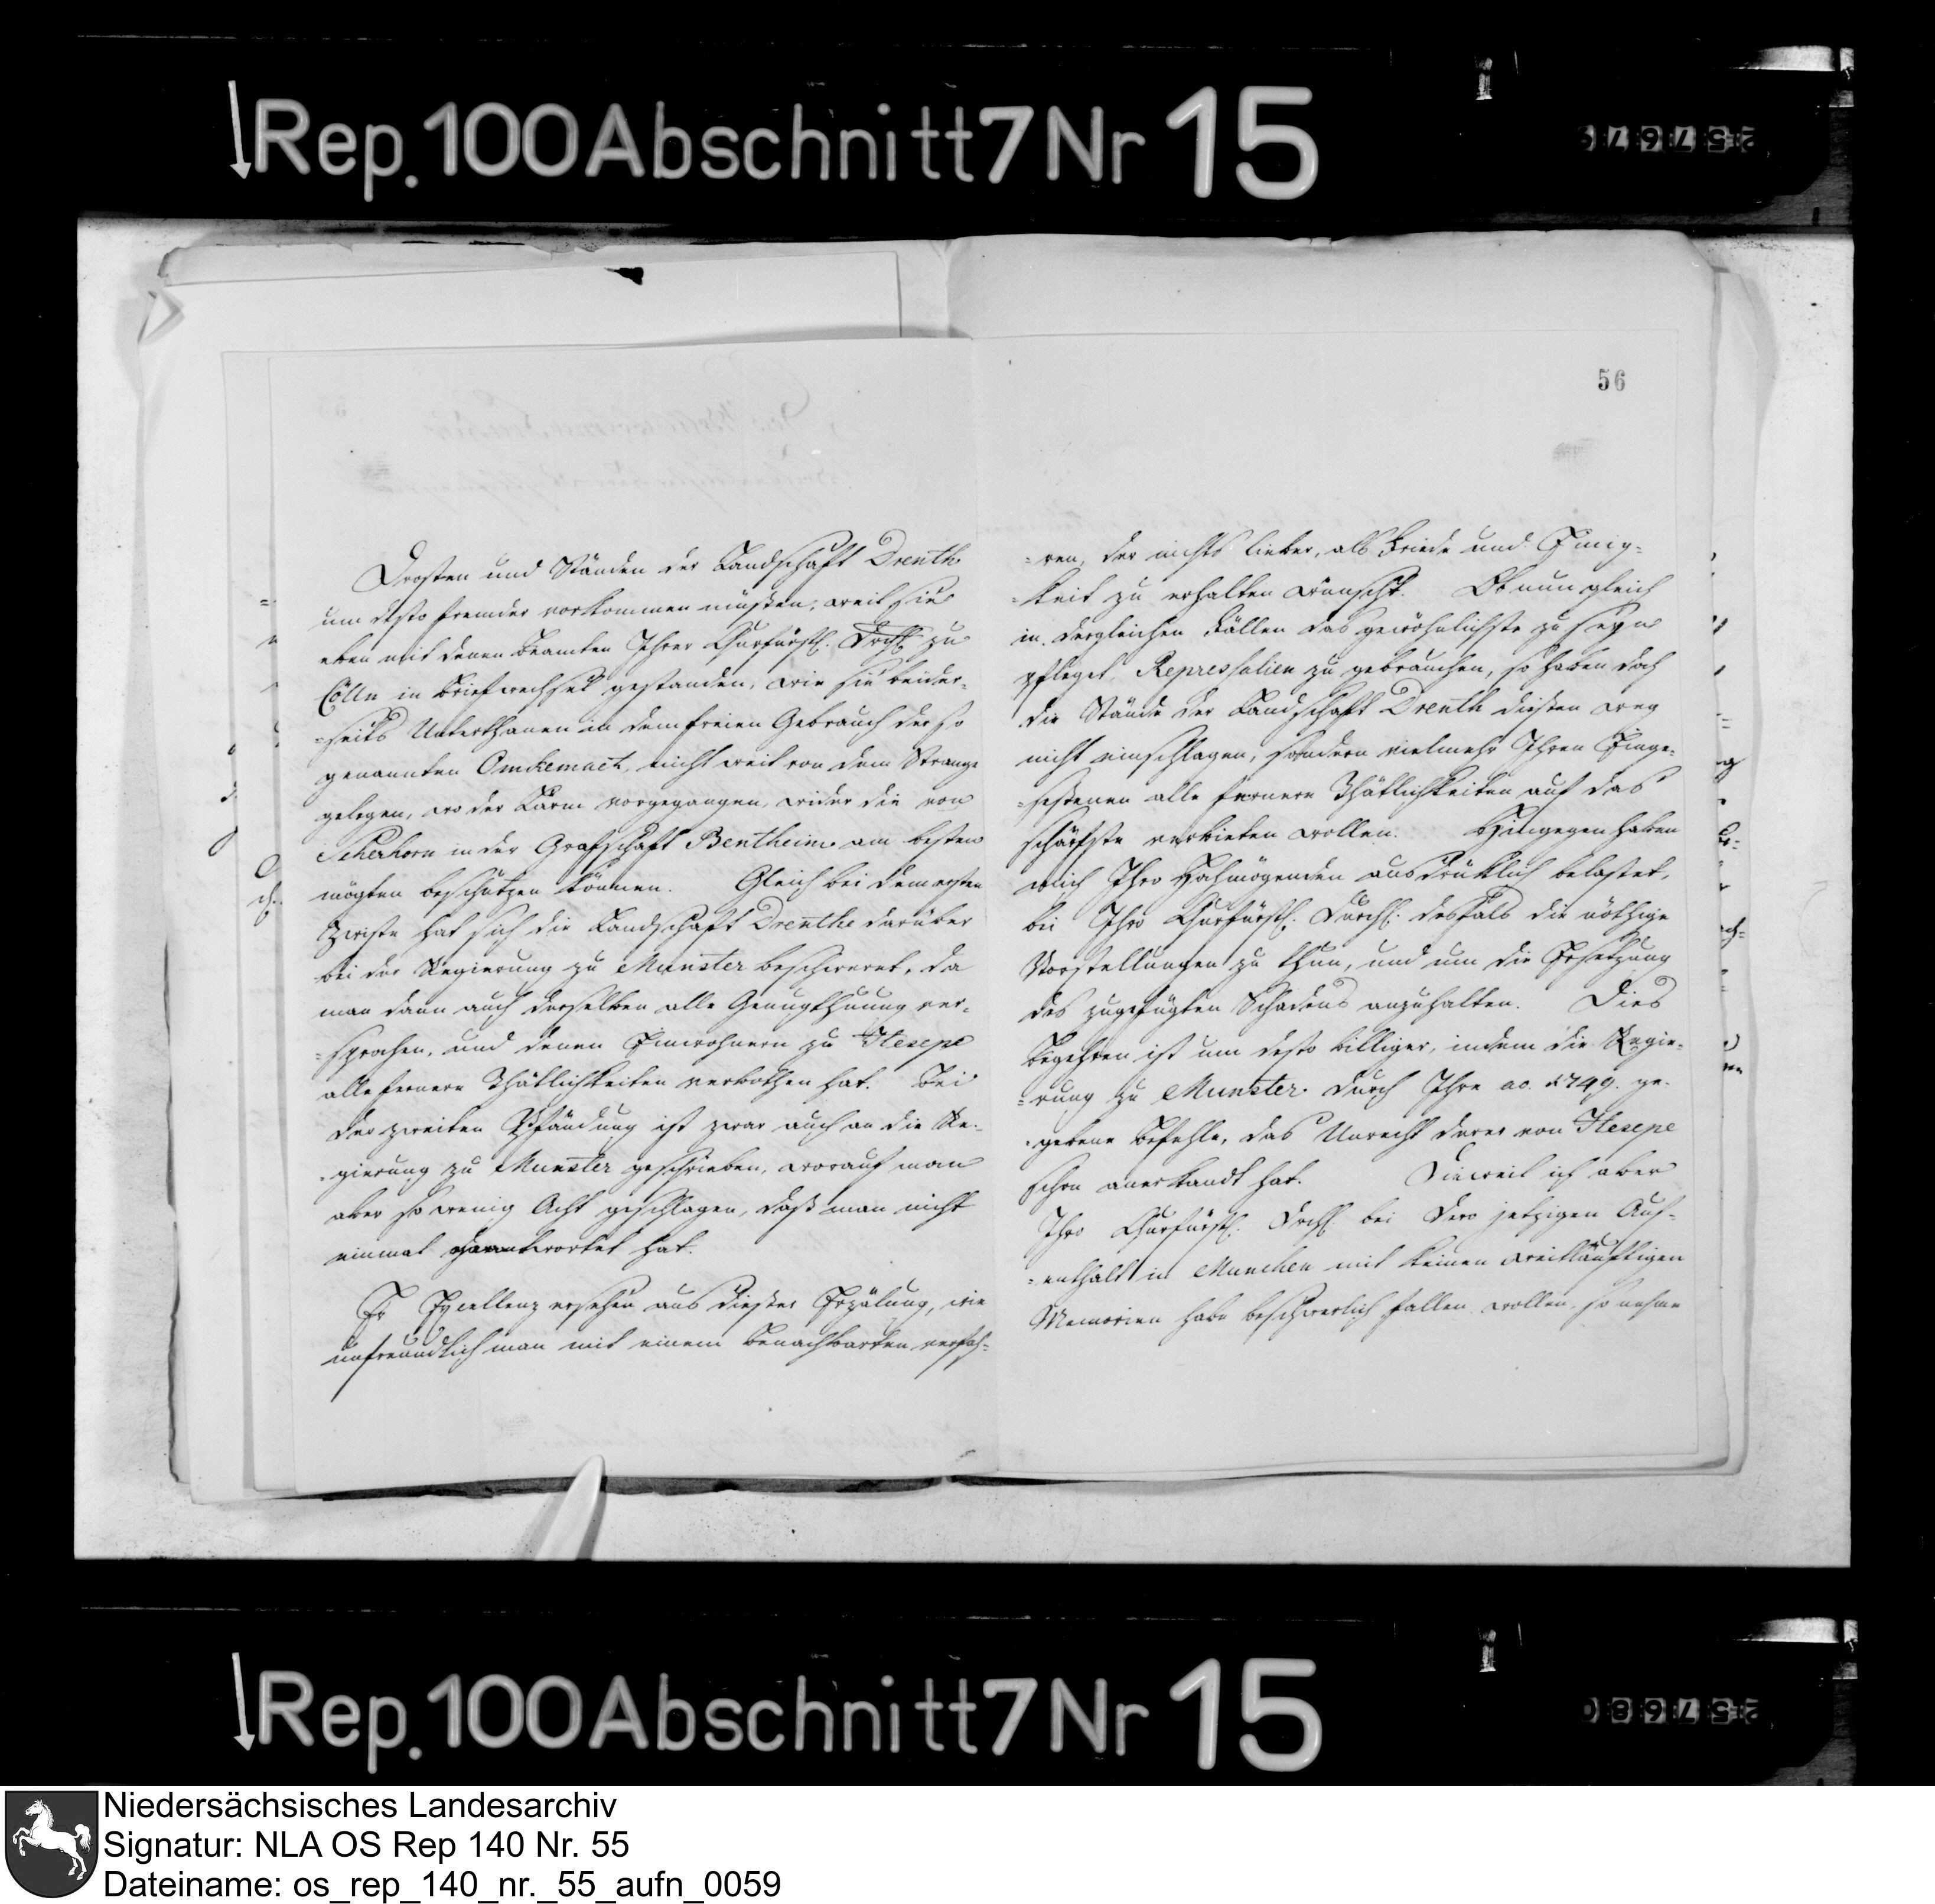 Rep. 100 Abschnitt 7 Nr 15
25767
56
Drosten und Ständen der Landschaft Drenth
um desto fremder vorkommen müßen, weil sie
eben mit denen Beamten Ihrer Churfürstl. Drchl. zu
Cölln in Briefwechsel gestanden, wie sie beider-
=seits Unterthanen in dem freien Gebrauch der so
genannten Omkemaet, nicht weit von dem Strange
gelegen, wo der Lärm vorgegangen, wider die von
Scherhorn in der Grafschaft Bentheim am besten
mögten beschützen können. Gleich bei dem ersten
Zwiste hat sich die Landschaft Drenthe darüber
bei der Regierung zu Munster beschweret, da
man dann auch derselben alle Genugthuung ver-
=sprochen, und denen Einwohnern zu Hesepe
alle fernere Thätlichkeiten verbothen hat. Bei
der zweiten Pfändung ist zwar auch an die Re-
gierung zu Munster geschrieben, worauf man
aber so wenig Acht geschlagen, daß man nicht
einmal geantwortet hat.
Ew Excellenz ersehen aus dießer Erzälung, wie
unfreundlich man mit einem benachbarten verfah-
=ren, der nichts lieber, als Friede und Einig-
=keit zu erhalten wünscht. Ob nun gleich
in dergleichen Fällen das gewöhnlichste zu seyn
pfleget, Repressalien zu gebrauchen, so haben doch
die Stände der Landschaft Drenth dießen weg
nicht einschlagen, sondern vielmehr Ihren Einge-
=seßenen alle fernere Thätlichkeiten auf das
schärfste verbieten wollen. Hingegen haben
mich Ihro Hochmögenden ausdrüklich belastet,
bei Ihro Churfürstl. Durchl. desfals die nöthige
Vorstellungen zu thun, und um die Ersetzung
des zugefügten Schadens anzuhalten. Dies
Begehren ist um desto billiger, indem die Regie-
=rung zu Munster durch Ihre ao. 1749. ge-
gebene Befehle, das Unrecht derer von Hesepe
schon anerkandt hat. Dieweil ich aber
Ihro Churfürstl. Drchl. bei Dero jetzigen Auf-
=enthalt in Munchen mit keinen weitläuftigen
Memorien habe beschwerlich fallen wollen, so nehme
Rep. 100 Abschnitt 7 Nr 15
25768
Niedersächsisches Landesarchiv
Signatur: NLA OS Rep 140 Nr. 55
Dateiname: os_rep_140_nr._55_aufn_0059